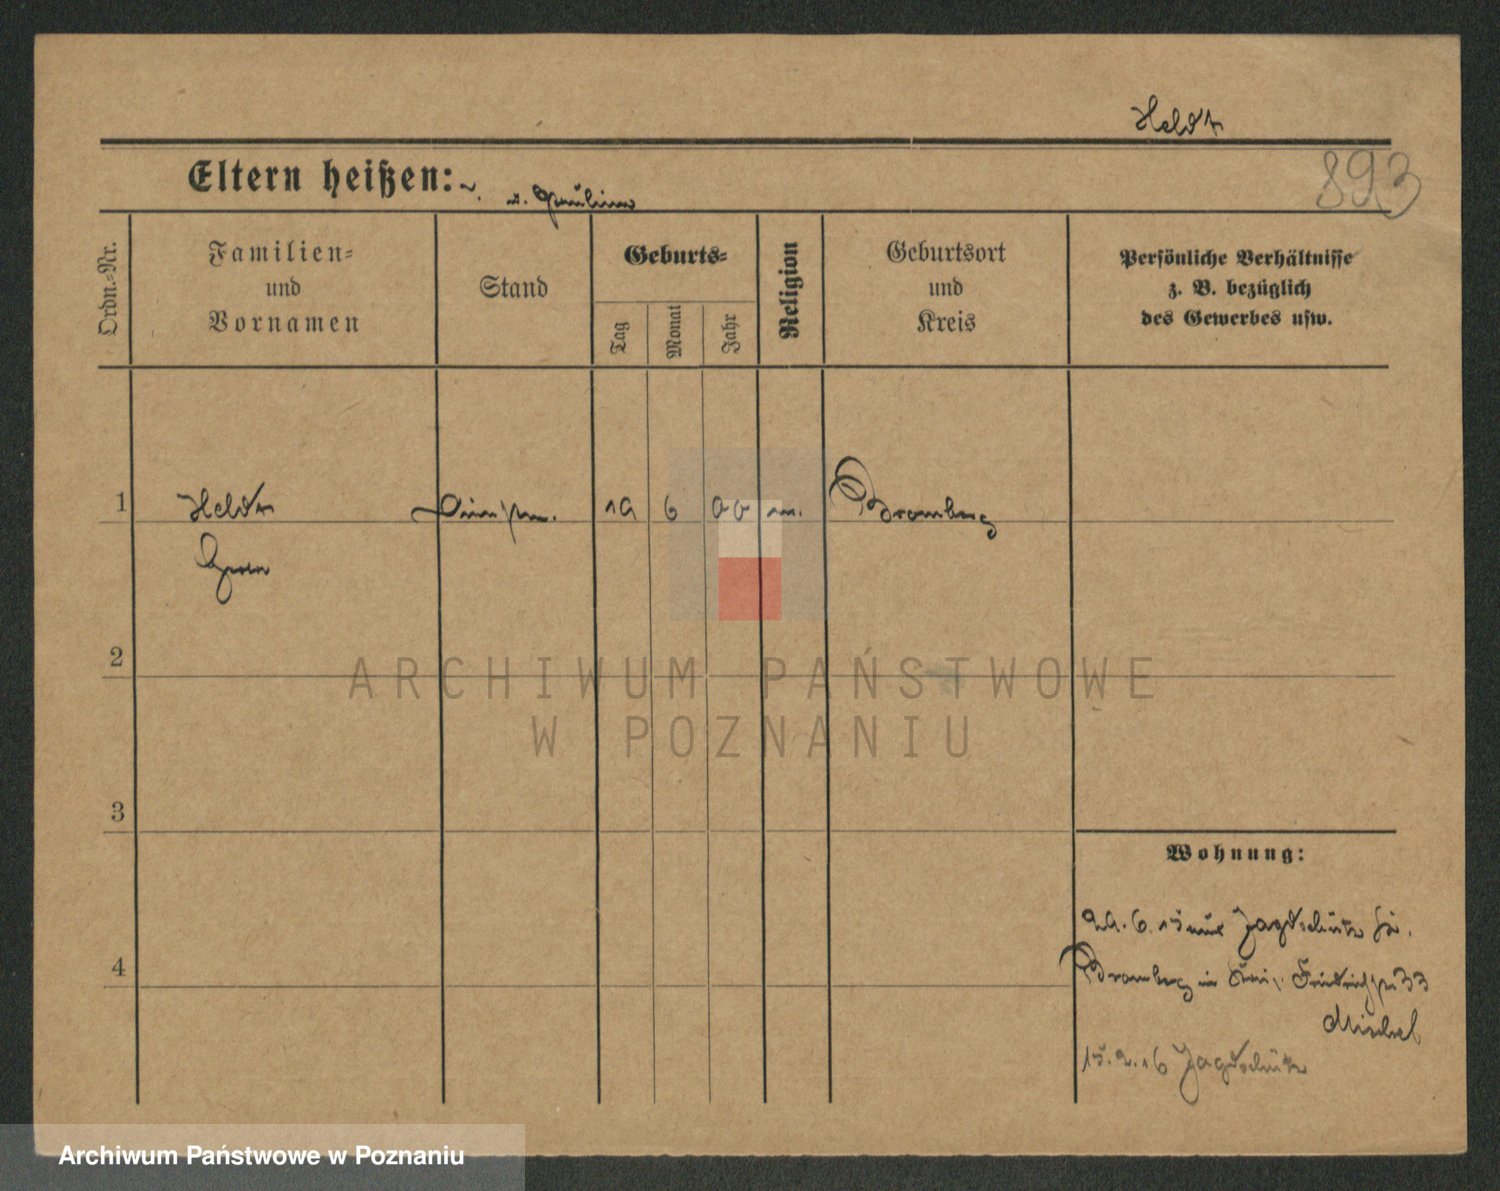 Heldt
893
Eltern heißen:
u. Pauline
Ordn.-Nr.
Familien-
und
Vornamen
Stand
Geburts-
Tag
Monat
Jahr
Religion
Geburtsort
und
Kreis
Persönliche Verhältnisse
z. B. bezüglich
des Gewerbes usw.
1 Heldt 19 6 Bromberg
2
3
4
Wohnung:
6. 15 Jagdschütz
Bromberg in Friedrichstr 33
Mischel
15. 2. 16 Jagdschütz
ARCHIWUM PAŃSTWOWE
W POZNANIU
Archiwum Państwowe w Poznaniu